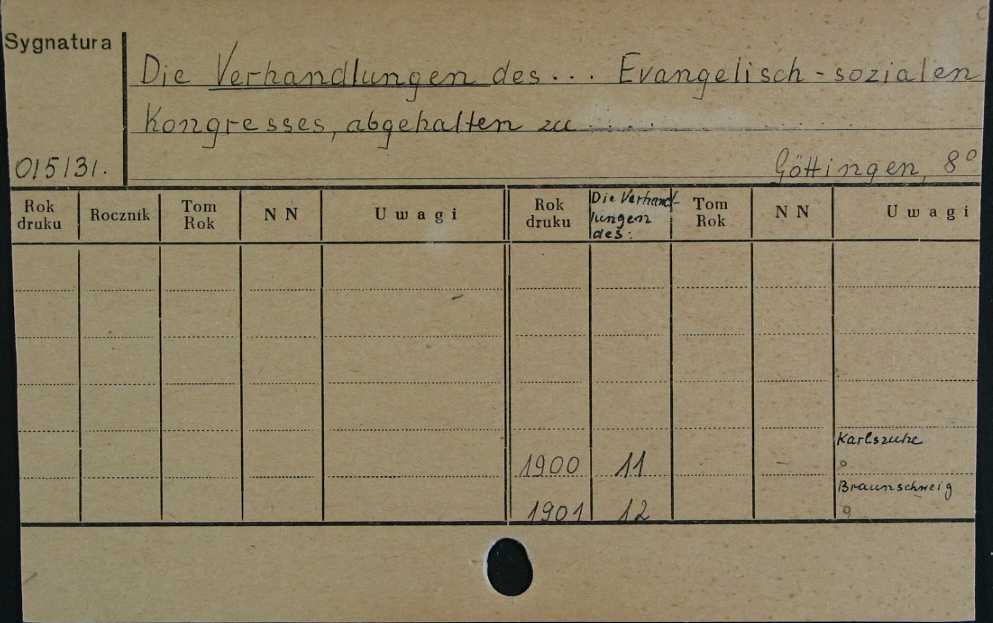 Sygnatura
Die Verhandlungen des... Evangelisch-sozialen
Kongresses, abgehalten zu ..........
015131. Göttingen, 8°
Rok druku Rocznik Tom Rok N N Uwagi Rok druku Die Verhandlungen des: Tom Rok N N Uwagi
Karlsruhe
1900 11
Braunschweig
1901 12